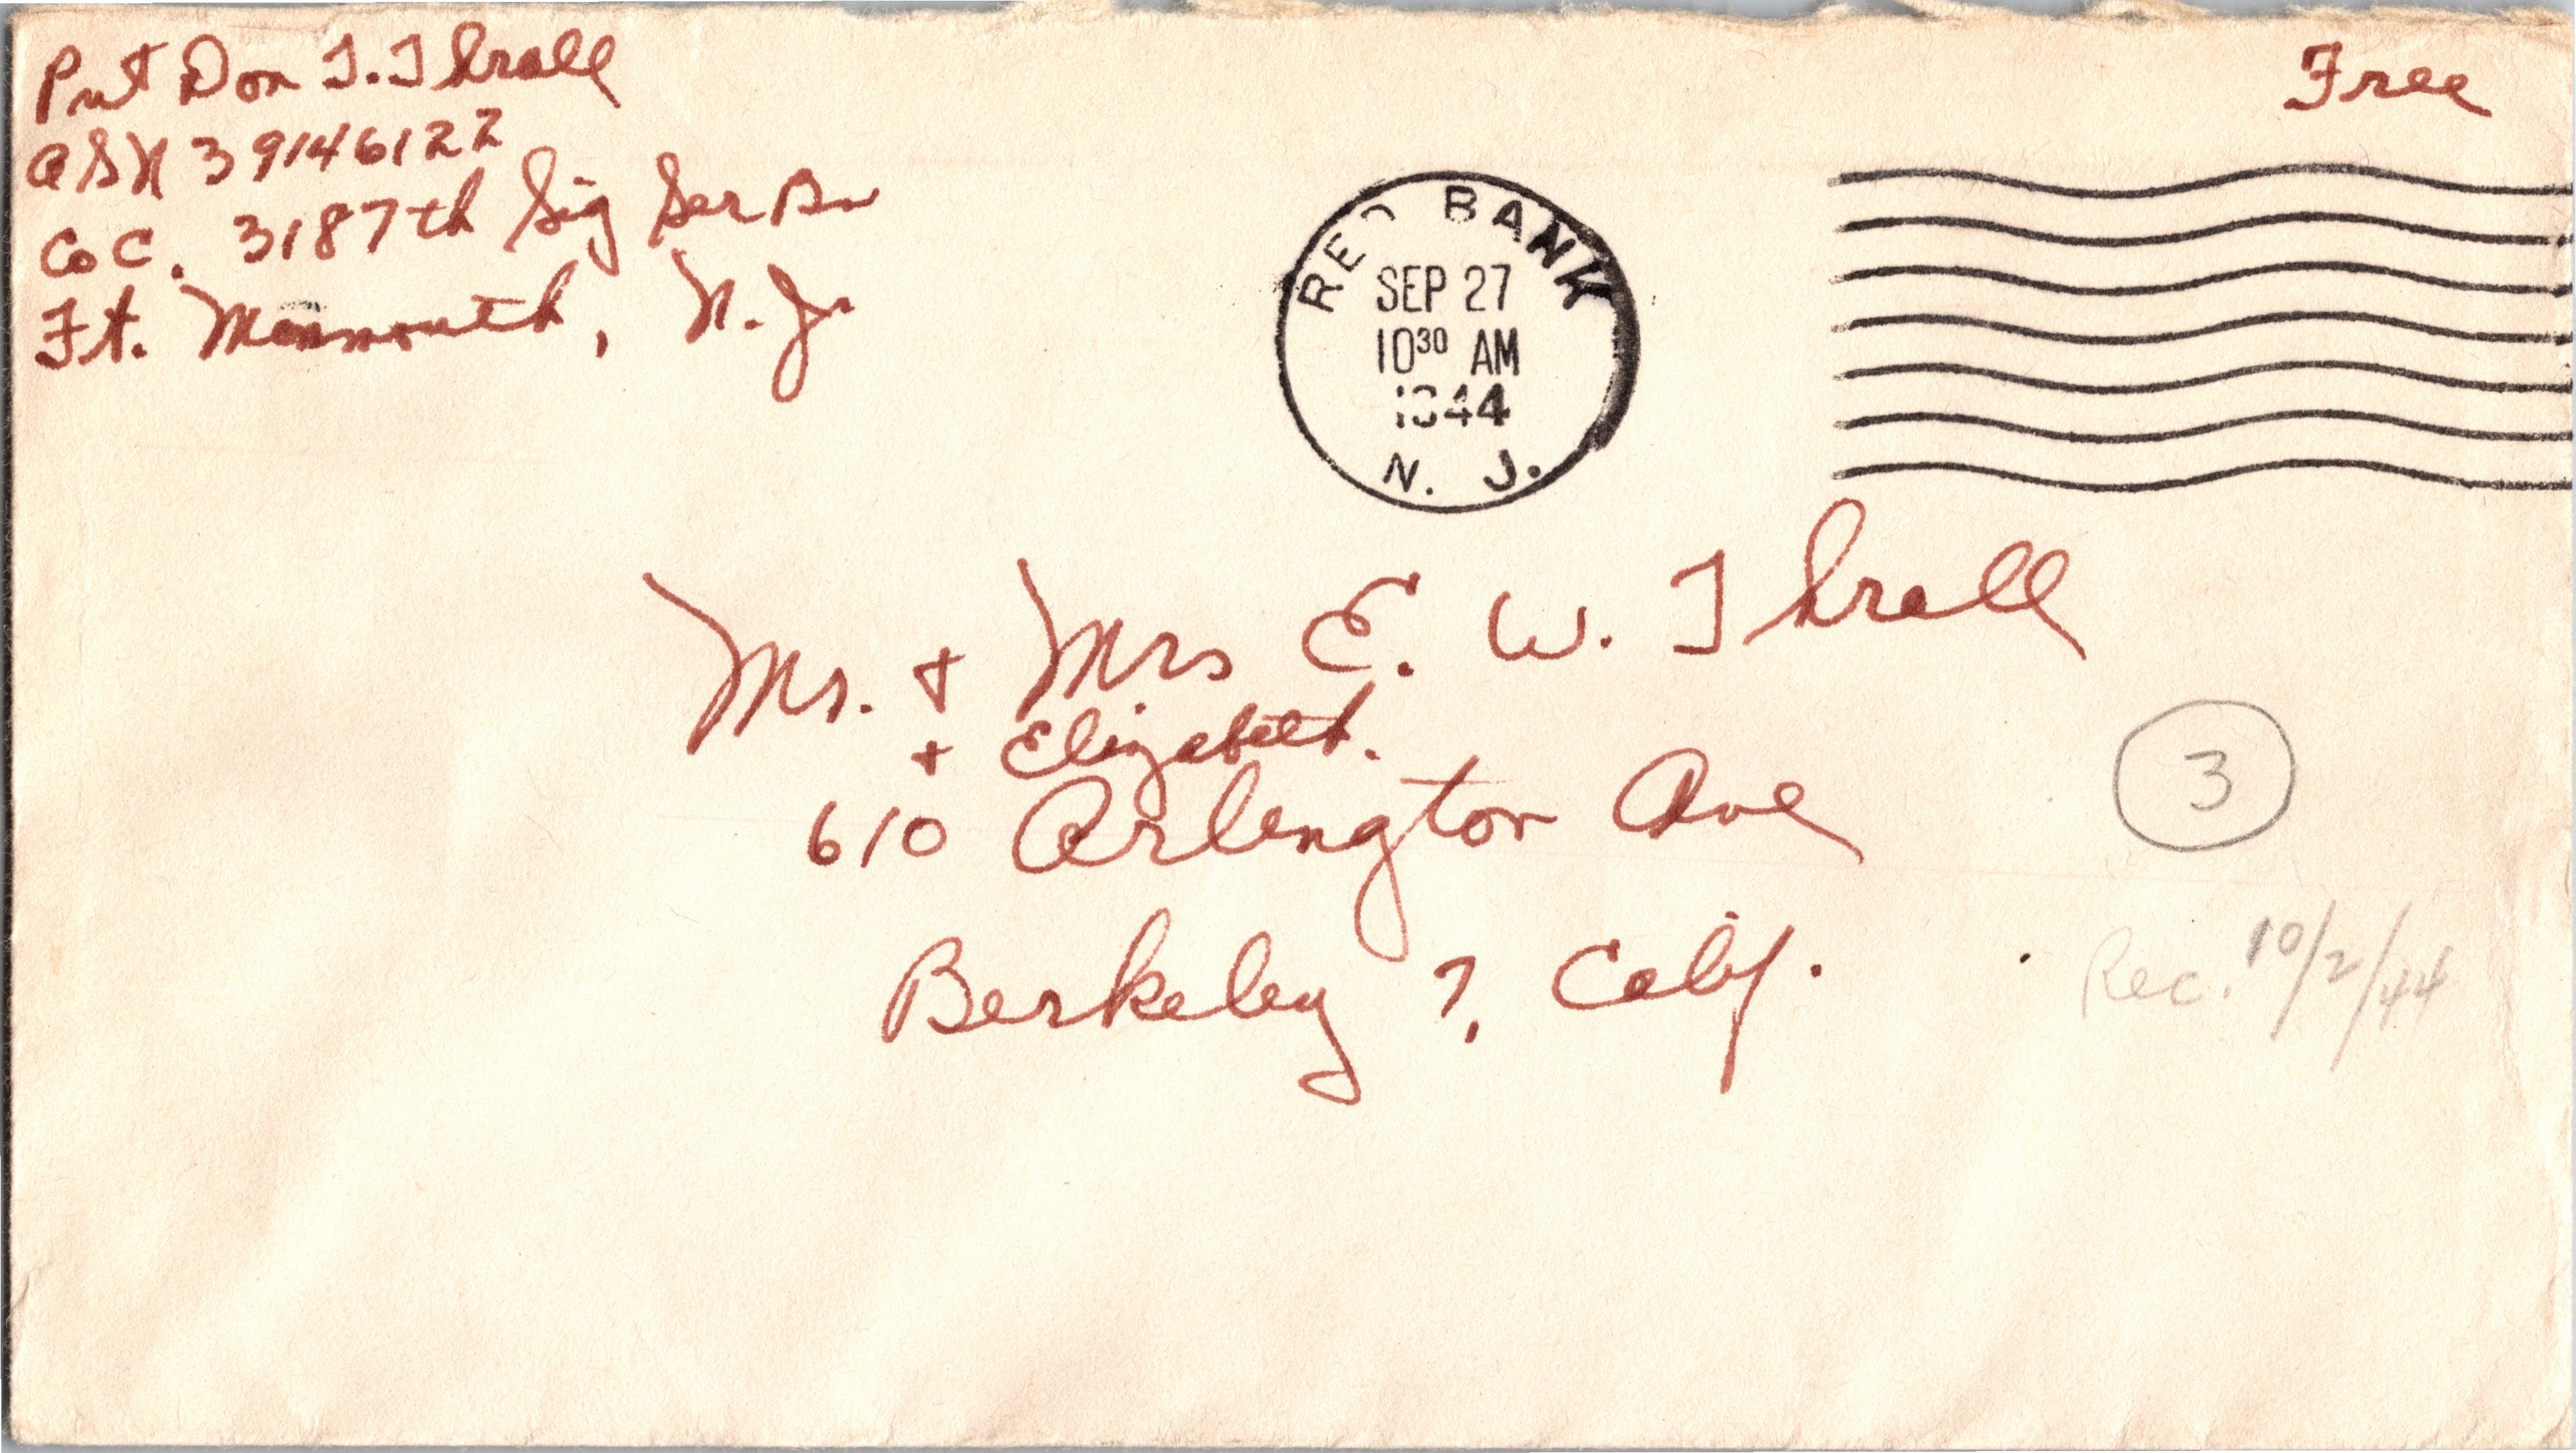 Pvt Don T. Thrall
ASN 39146122
Co C. 3187th Sig Ser Bn
Ft. Monmouth, N. J.
Free
RED BANK
SEP 27
10 30 AM
1944
N. J.
Mr. + Mrs E. W. Thrall
+ Elizabeth.
610 Arlington Ave
Berkeley 7, Calif.
3
Rec. 10/2/44